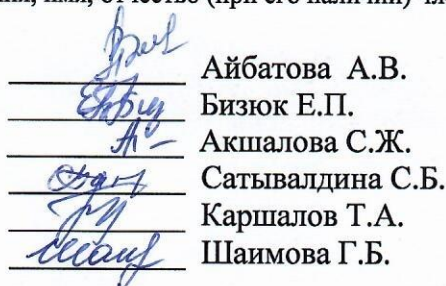 имя, отчество (при его наличии)
Айбатова А.В.
Бизюк Е.П.
Акшалова С.Ж.
Сатывалдина С.Б.
Каршалов Т.А.
Шаимова Г.Б.